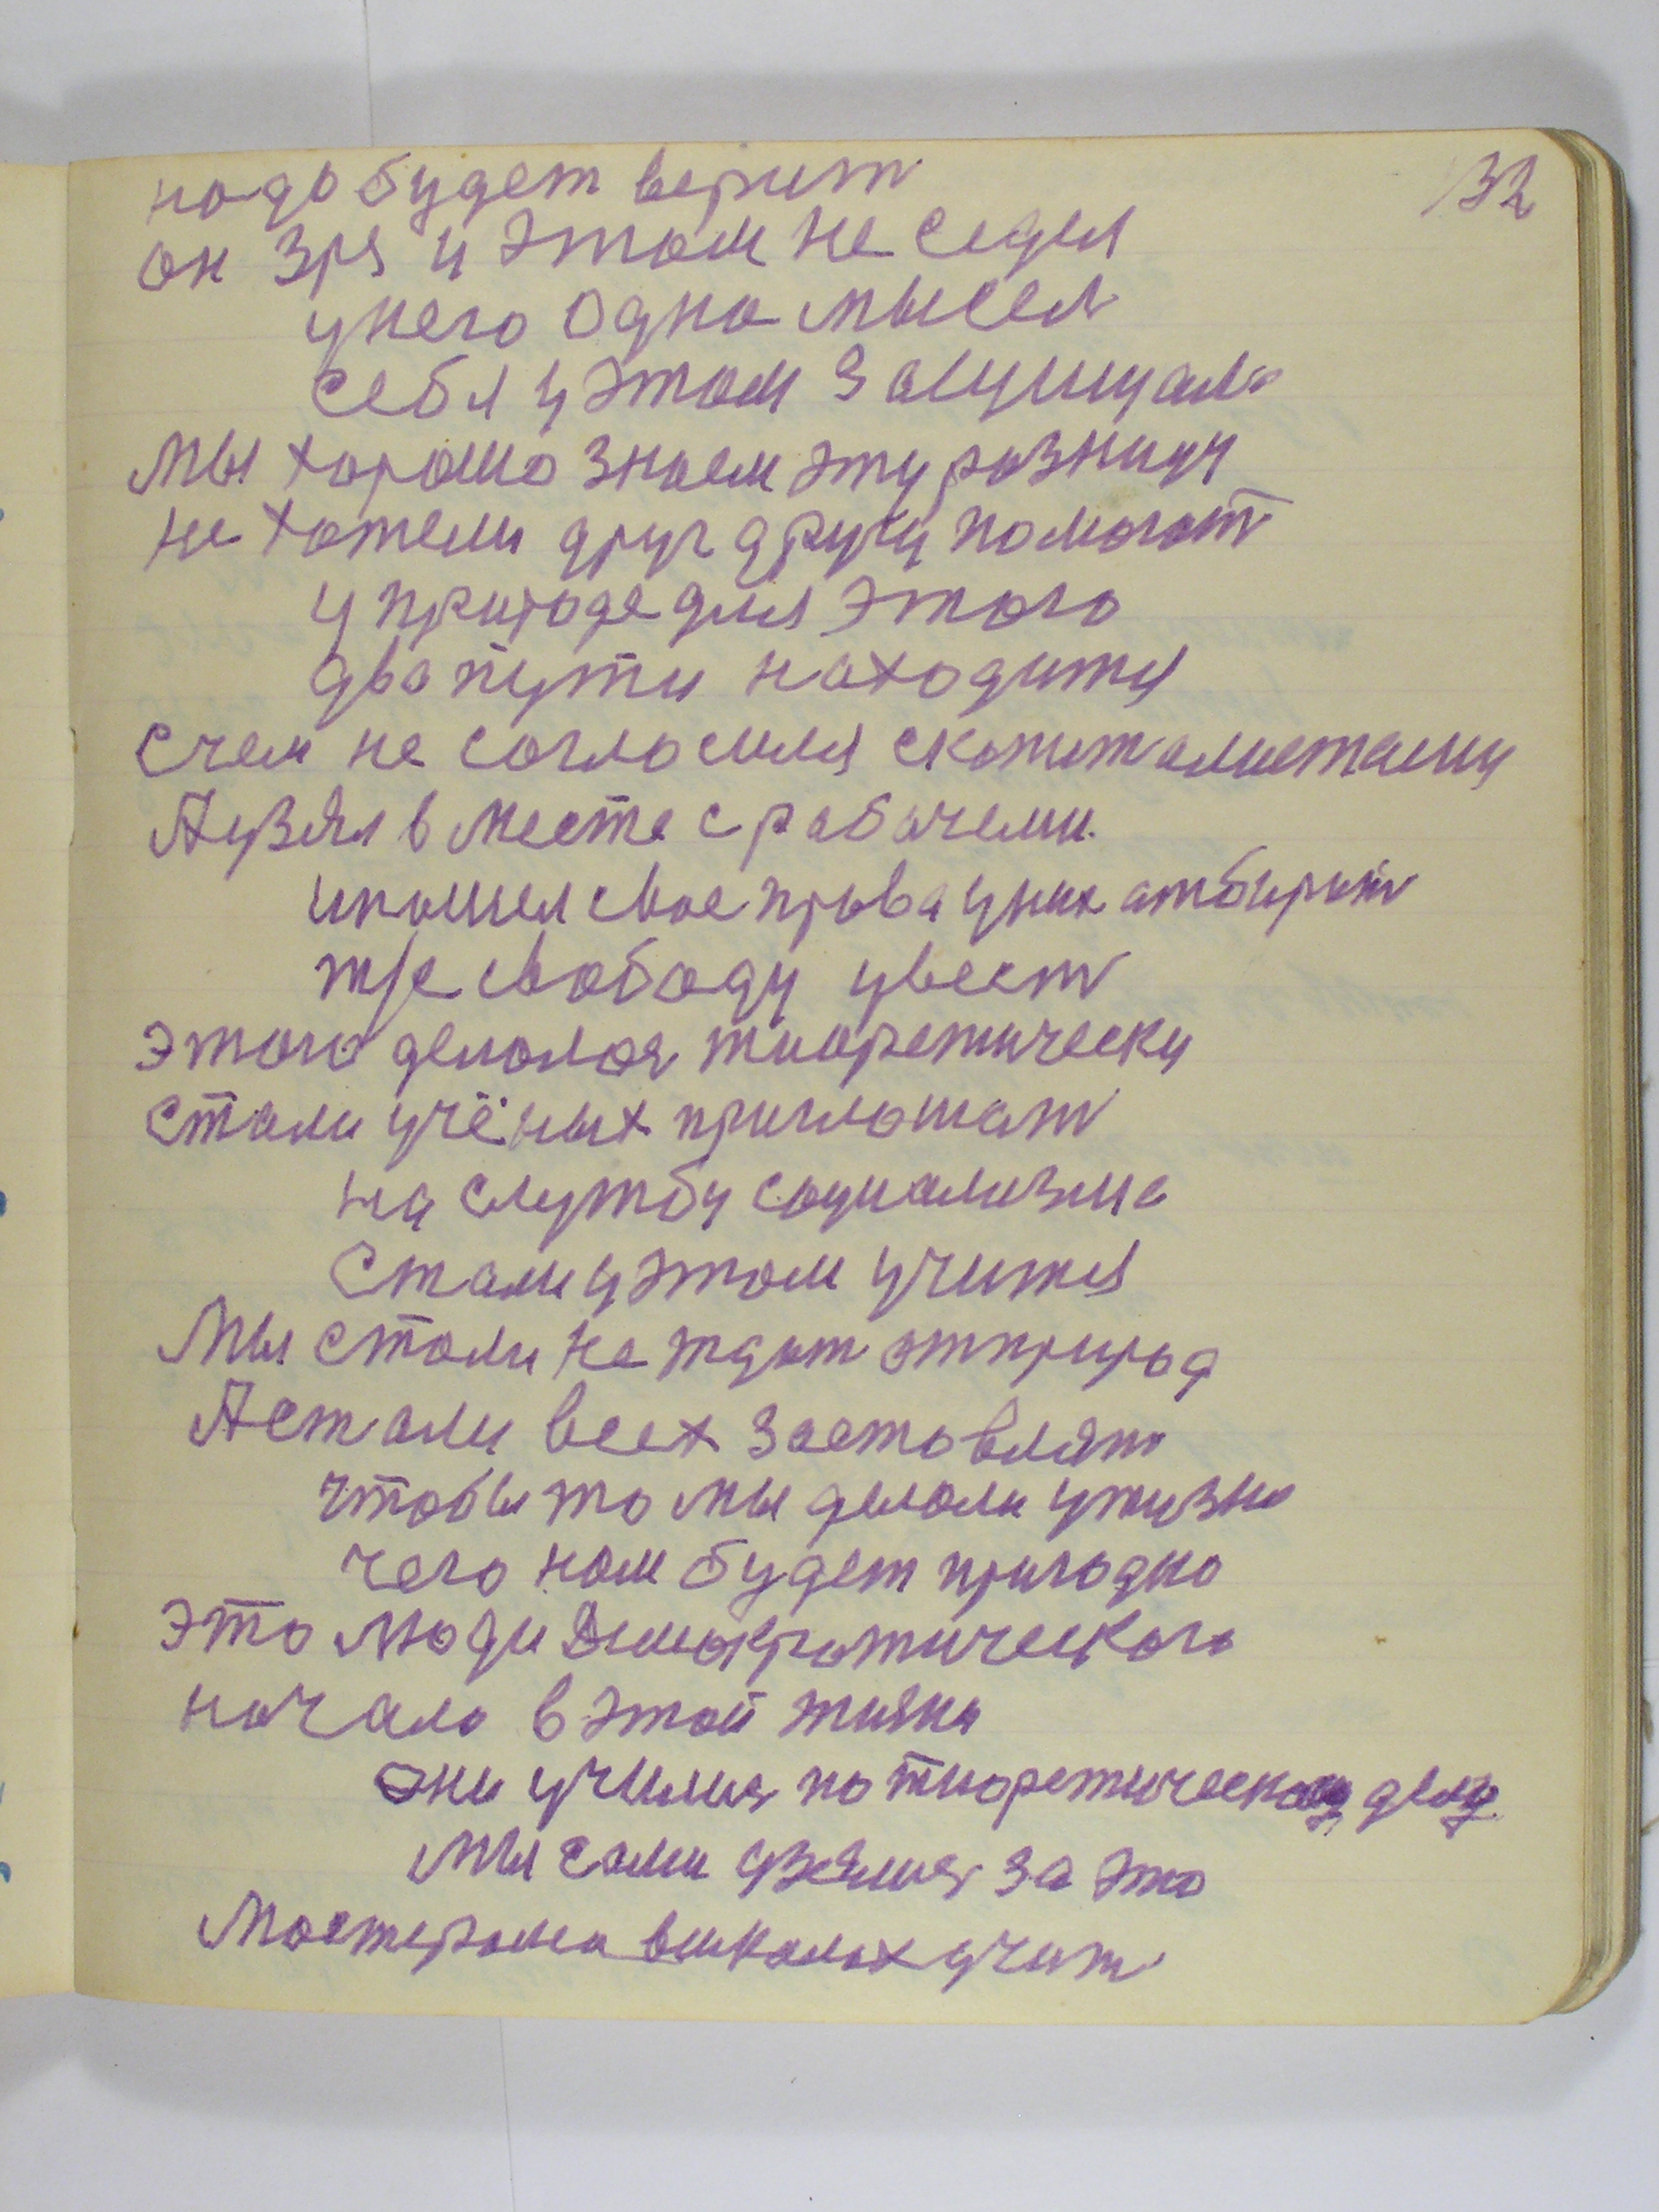 32
надо будет верит
он зря у этом не седел
у него одна мысел
себя у этом защищал
Мы хорошо знаем эту разницу
не хотели друг другу помогат
у природе для этого
два пути находится
С чем не согласился с капиталистами
А узял в месте с рабочеми.
и пошел свое права у них отбират
же свободу увест
этого делалось тиоретически
Стали учёных приглошат
на службу социализма
Стали у этом учится
Мы стали не ждат от природ
А стали всех заставлят
чтобы то мы делали у жизни
чего нам будет пригодно
Это люди демократического
начало в этой жизни
они учились по тиоретическому делу
Мы сами узялися за это
Мастерами в школах учит